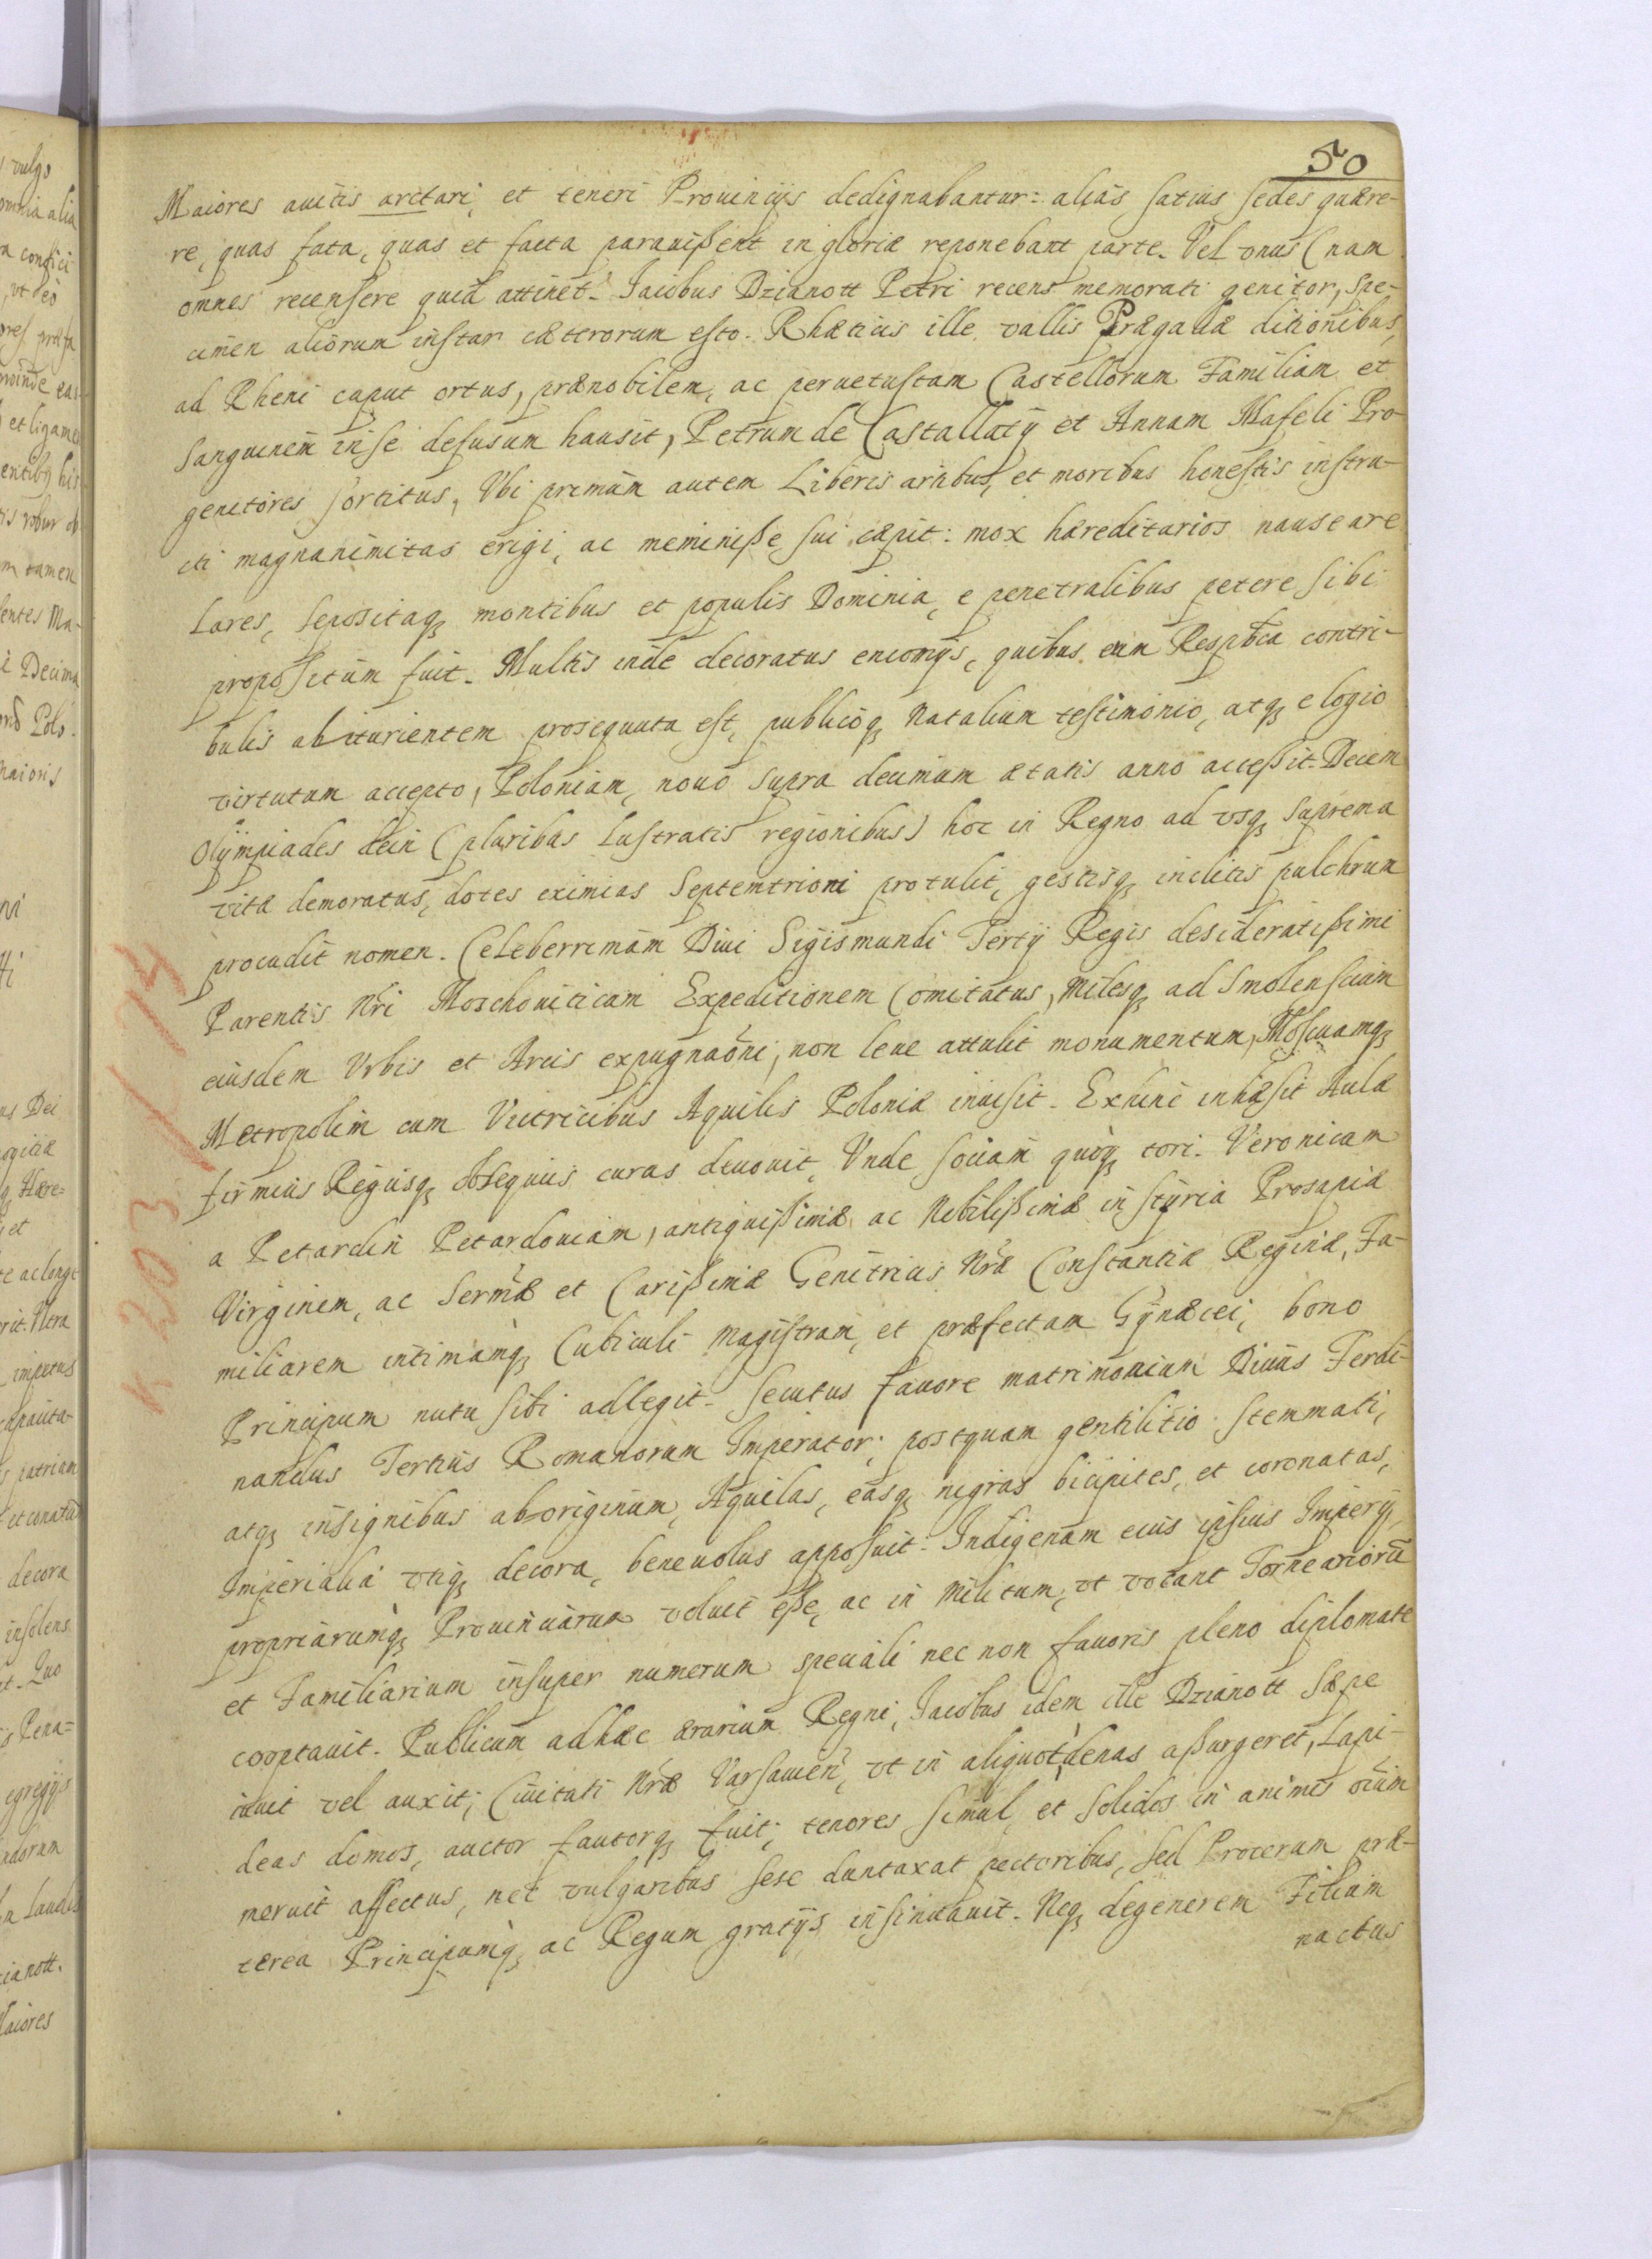 50
Maiores auitis arctari, et teneri Prouincijs dedignabantur: alias satius sedes quære-
re, quas fata, quas et facta parauißent in gloriæ reponebant parte. Vel onus (nam
omnes recensere quid attinet. Iacobus Dzianott Petri recens memorati genitor, spe-
cimen aliorum instar cæterorum esto. Rhæticus ille vallis Prægaliæ ditionibus,
ad Rheni caput ortus, prænobilem, ac peruetustam Castellorum Familiam et
Sanguinem in se defusum hausit, Petrum de Castallatij et Annam Mafeli Pro-
genitores sortitus, Vbi primùm autem Liberis artibus, et moribus honestis instru-
cti magnanimitas erigi, ac meminiße sui cæpit: mox hæreditarios nauseare
Lares, sepositaq montibus et populis Dominia, e penetralibus petere sibi
propositum fuit. Multis inde decoratus encomijs, quibus eum Respblca contri-
bulis abiturientem prosequuta est, publicoq Natalium testimonio, atq elogio
virtutum accepto, Poloniam, nouo supra decimum ætatis anno acceßit. Decem
Olÿmpiades dein (pluribus lustratis regionibus) hoc in Regno ad vsq suprema
vitæ demoratus, dotes eximias Septemtrioni protulit, gestisq inclitis pulchrum
procudit nomen. Celeberrimam Diui Sigismundi Tertij Regis desideratißimi
Parentis Nri Moschouiticam Expeditionem Comitatus, Milesq ad Smolensciam
eiusdem Vrbis et Arcis expugnaõni, non leue attulit monumentum, Moscuamq
Metropolim cum Victricibus Aquilis Poloniæ inuisit. Exhinc inhæsit Aulæ
firmius Regijsq Obsequijs curas deuouit, Vnde sociam quoq tori. Veronicam
a Petardin Petardouiam, antiquißimæ ac Nobilißimæ in stÿria Prosapiæ
Virginem, ac Sermæ et Carißimæ Genitricis Nræ Constantiæ Reginæ, Fa-
miliarem intimamq Cubiculi Magistram, et præfectam Gÿnæcei, bono
Principum nutu sibi adlegit. Secutus fauore matrimonium Diuus Ferdi-
nandus Tertius Romanorum Imperator; postquam gentilitio stemmati,
atq insignibus ab originum, Aquilas, easq nigras bicipites, et coronatas,
Imperialia vtiq decora, beneuolus apposuit. Indigenam eius ipsius Imperij,
propriarumq Prouinciarum voluit eße, ac in Militum, vt vocant Torneariorũ
et Familiarium insuper numerum speciali nec non fauoris pleno diplomate
cooptauit. Publicum adhæc ærarium Regni, Iacobus idem ille Dzianott sæpe
iuuit vel auxit; Ciuitati Nræ Varsauien, vt in aliquot denas aßurgeret, Lapi-
deas domos, auctor fautorq fuit; tenores simul, et solidos in animis oium
meruit affectus, nec vulgaribus sese duntaxat pectoribus, sed Procerum præ-
terea Principumq ac Regum gratijs insinuauit. Neq degenerem Filium
nactus